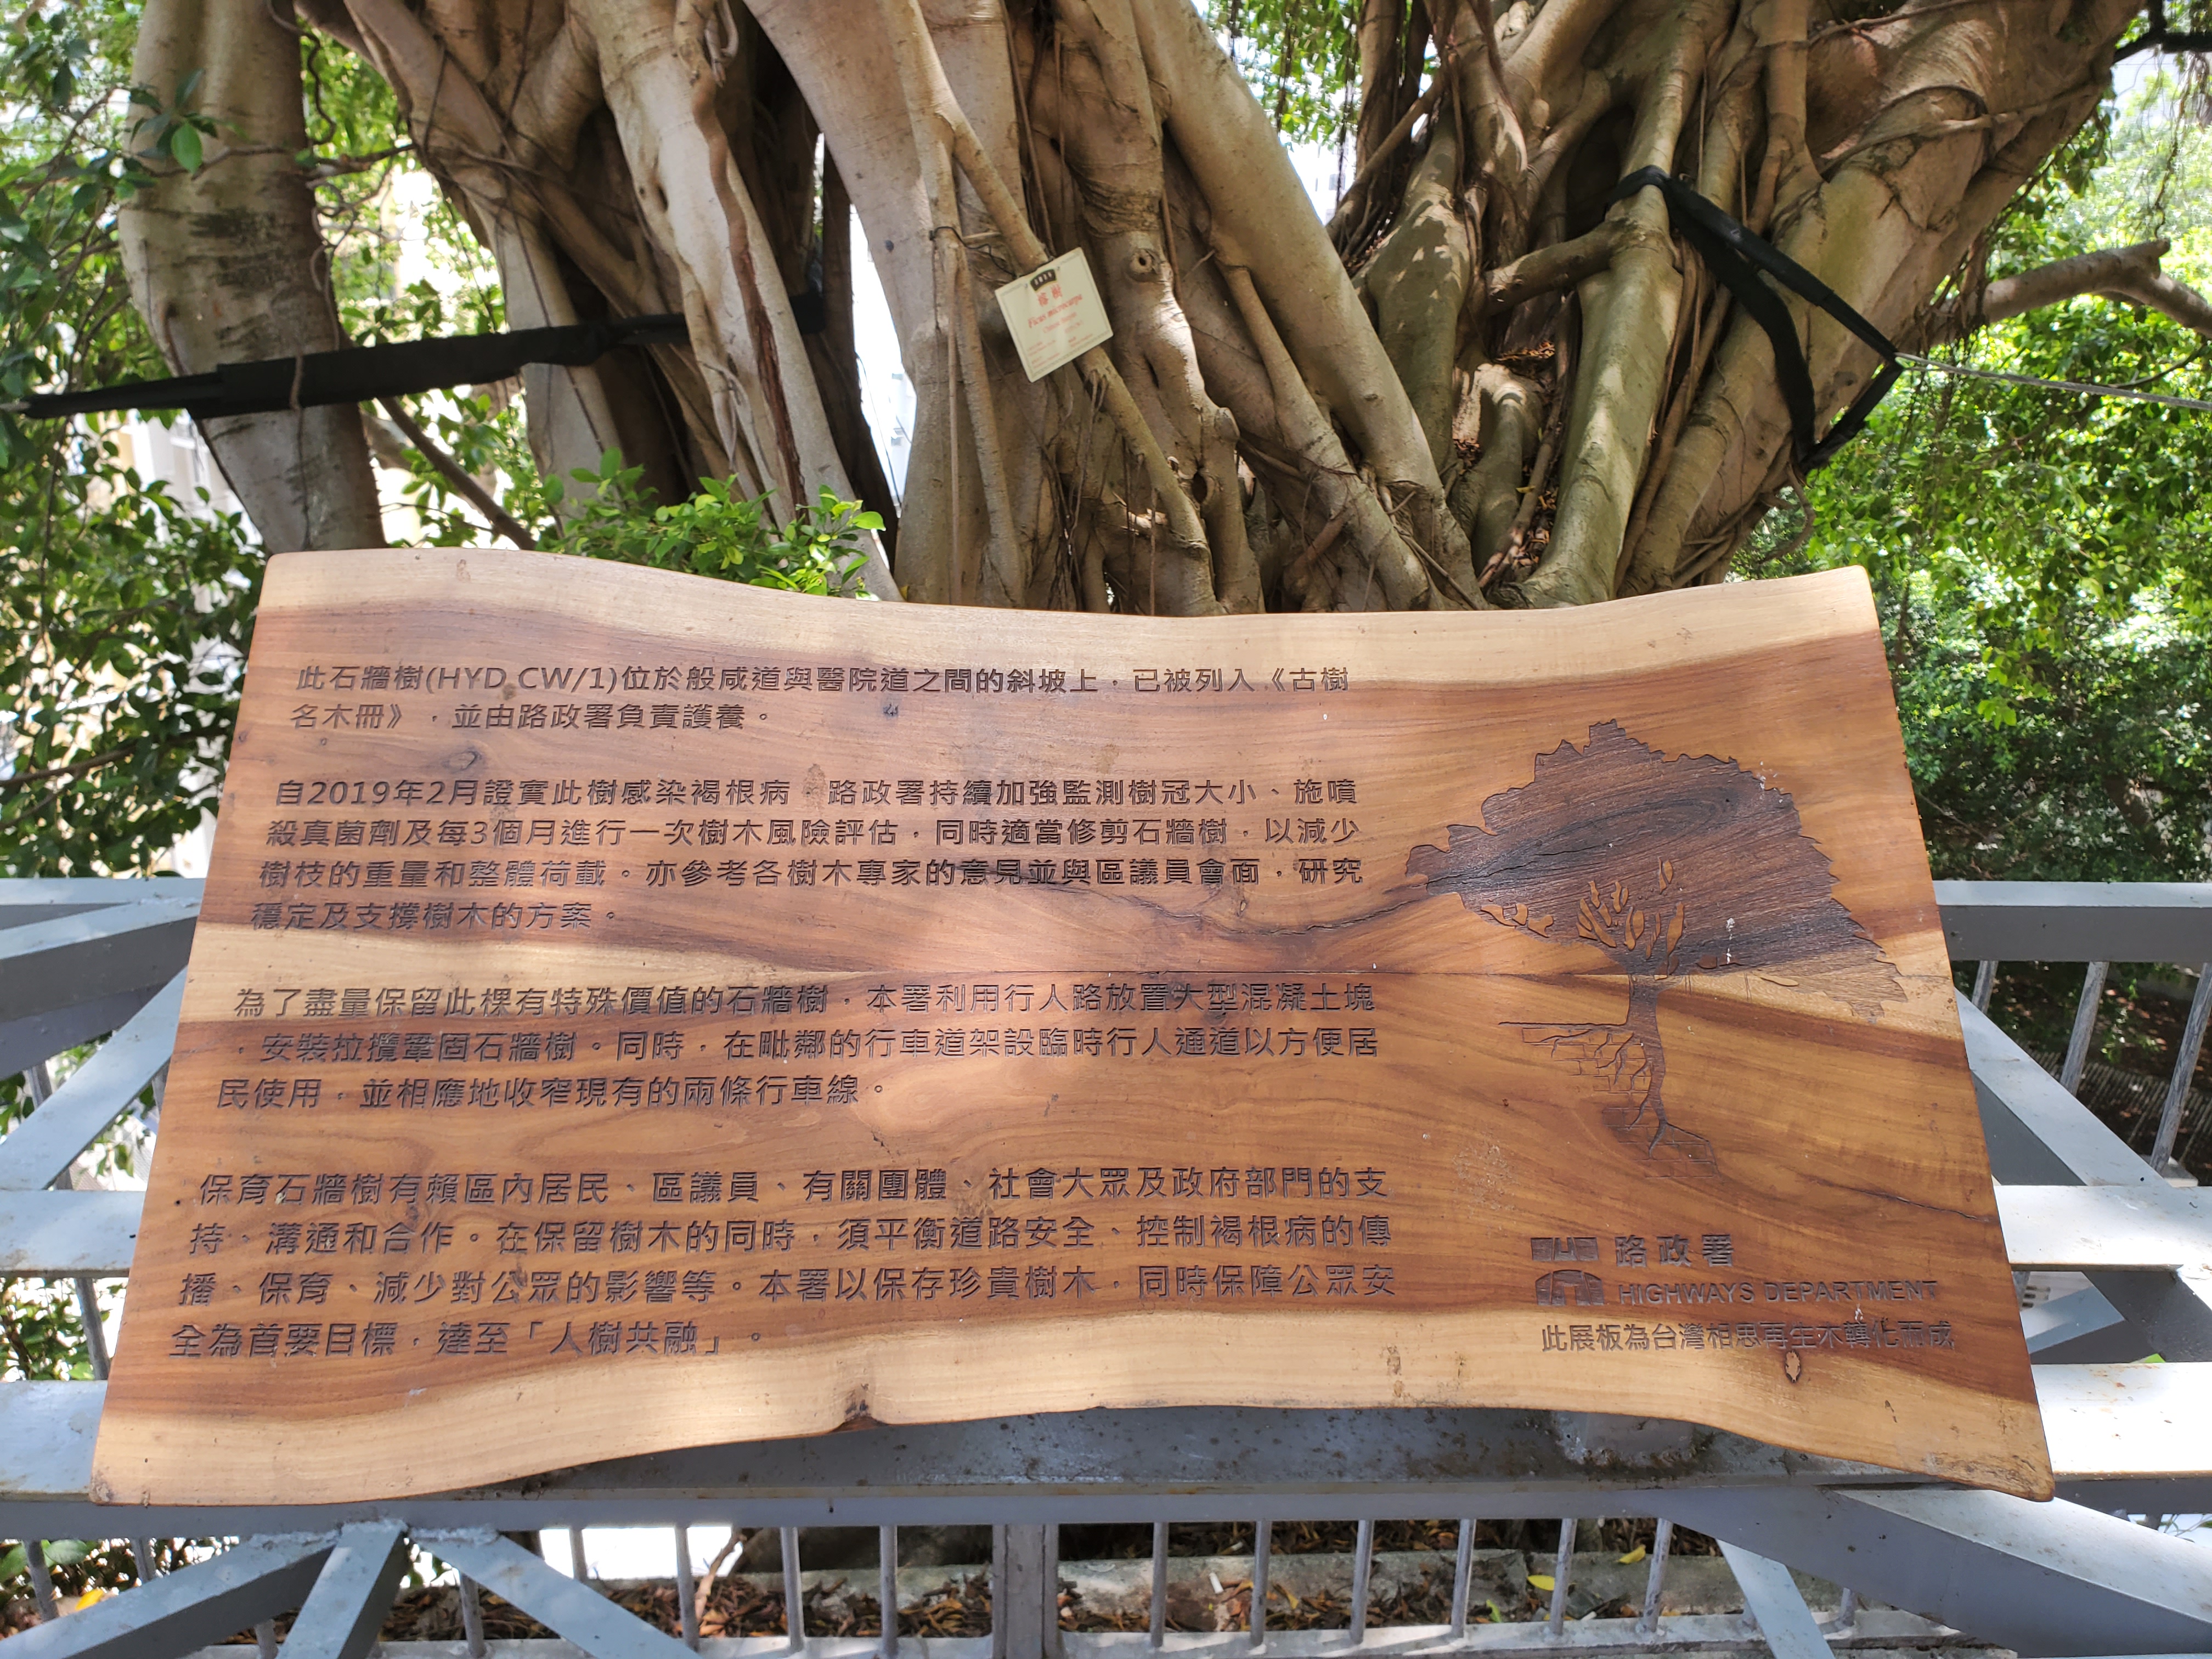 榕樹
Ficus microcarpa
此石牆樹(HYD CW/1)位於般咸道與醫院道之間的斜坡上，已被列入《古樹
名木冊》，並由路政署負責護養。
自2019年2月證實此樹感染褐根病，路政署持續加強監測樹冠大小、施噴
殺真菌劑及每3個月進行一次樹木風險評估，同時適當修剪石牆樹，以減少
樹枝的重量和整體荷載。亦參考各樹木專家的意見並與區議員會面，研究
穩定及支撐樹木的方案。
為了盡量保留此棵有特殊價值的石牆樹，本署利用行人路放置大型混凝土塊
，安裝拉攬鞏固石牆樹。同時，在毗鄰的行車道架設臨時行人通道以方便居
民使用，並相應地收窄現有的兩條行車線。
保育石牆樹有賴區內居民、區議員、有關團體、社會大眾及政府部門的支
持、溝通和合作。在保留樹木的同時，須平衡道路安全、控制褐根病的傳
播、保育、減少對公眾的影響等。本署以保存珍貴樹木，同時保障公眾安
全為首要目標，達至「人樹共融」。
路政署
HIGHWAYS DEPARTMENT
此展板為台灣相思再生木轉化而成